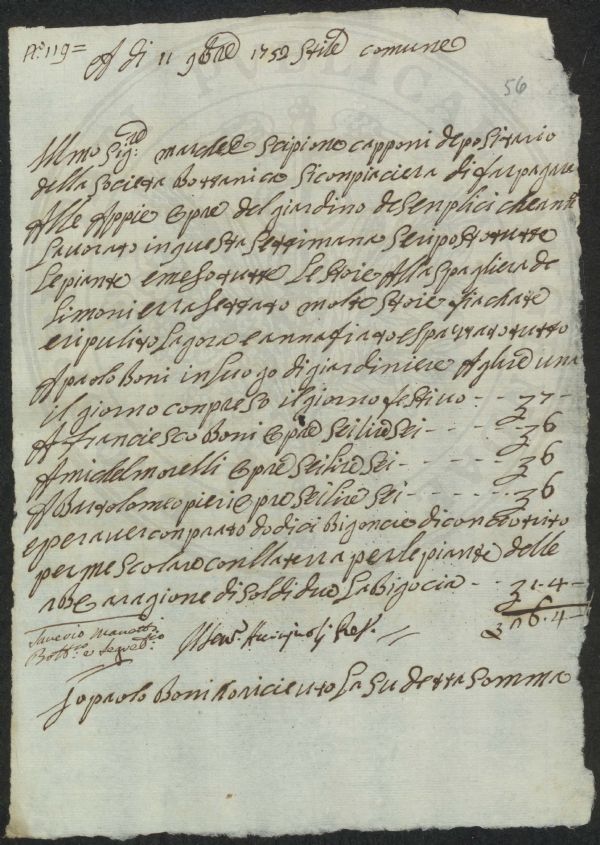 N.º 119=
A di 11 9bre 1752 Stile comune
56
Illmo Sigre: marchese Scipione capponi depositario
della Societa Bottanica Siconpiaciera di far pagare
Alle Appie Opre del giardino de Senplici che anno
Lavorato in questa Settimana Seriposto tutte
Le piante e meso tutte Le Stoie Alla Spagliera de
Limoni e rasettato molte Stoie Fiachate
e ripulito La gora e annafiato e spazzato tutto
A paolo Boni in Luogo di giardiniere A lire una
il giorno conpreso il giorno festivo - - 7 -
A franciesco Boni Opre Sei lire Sei - - - - 6
A michel morelli Opre Sei lire Sei - - - - - 6
A Bartolomeo pieri Opre Sei lire Sei - - - - - 6
e per aver conprato dodici Bigoncie di concio trito
per mescolare con lla terra per le piante delle
a ragione di Soldi due La bigocia - - 1.4 -
26.4 -
Saverio Manetti
Bott.co e Segret.rio
Io paolo Boni ho riceuto La Su detta Somma